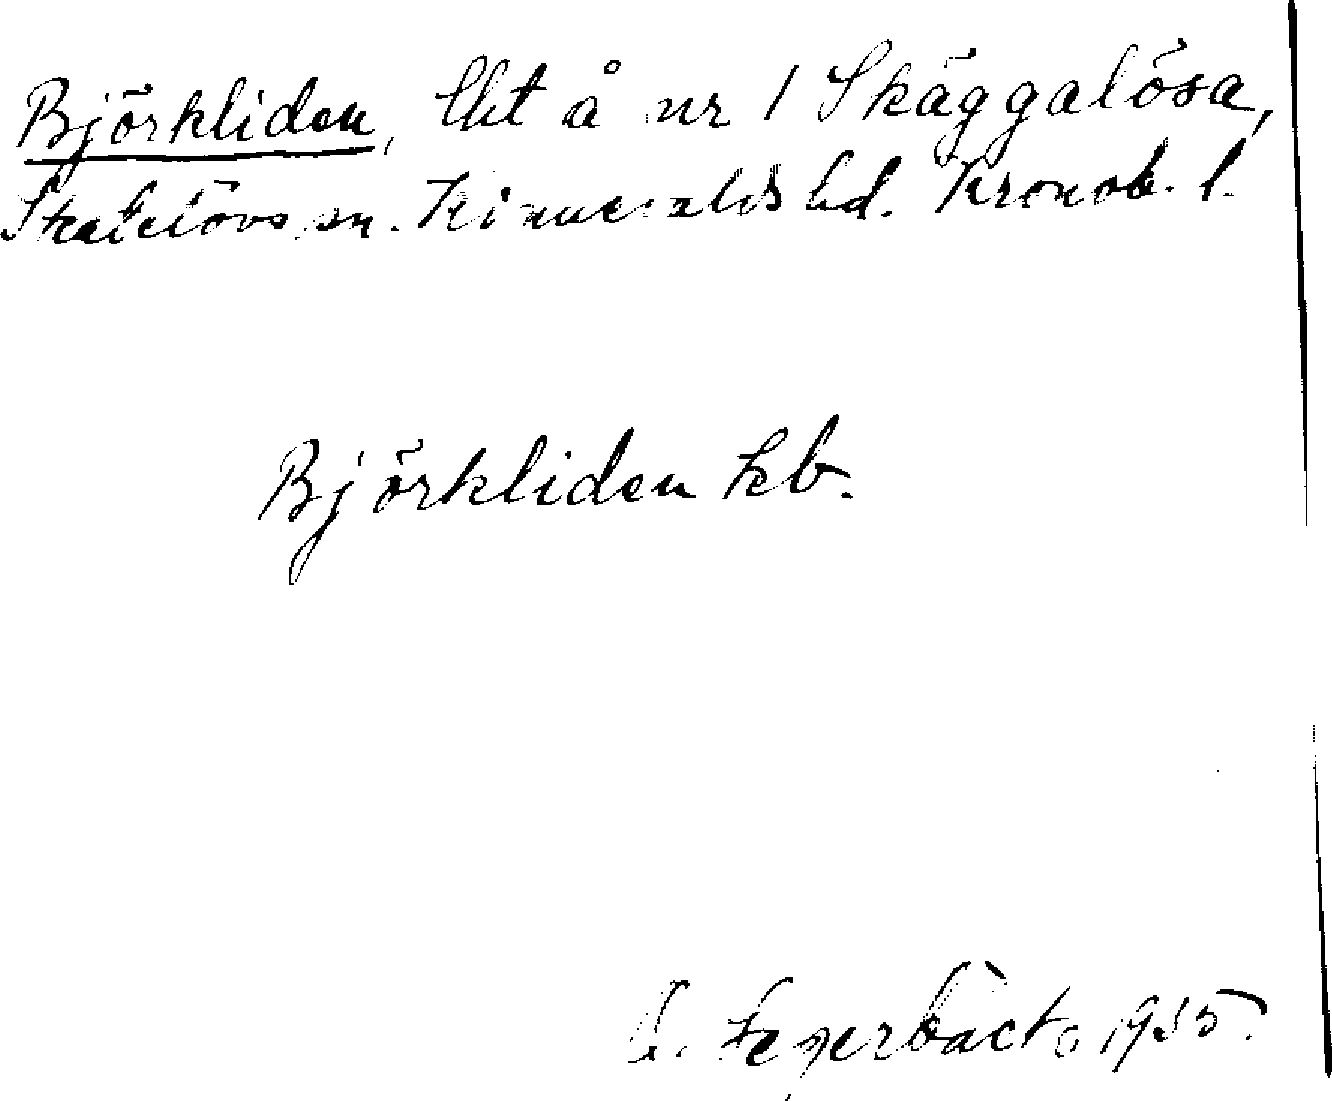 Björkliden, lht å nr 1 Skäggalösa,
Skatelövs sn. Kinnevalds hd. Kronob. l.
Björkliden kb.
1955.